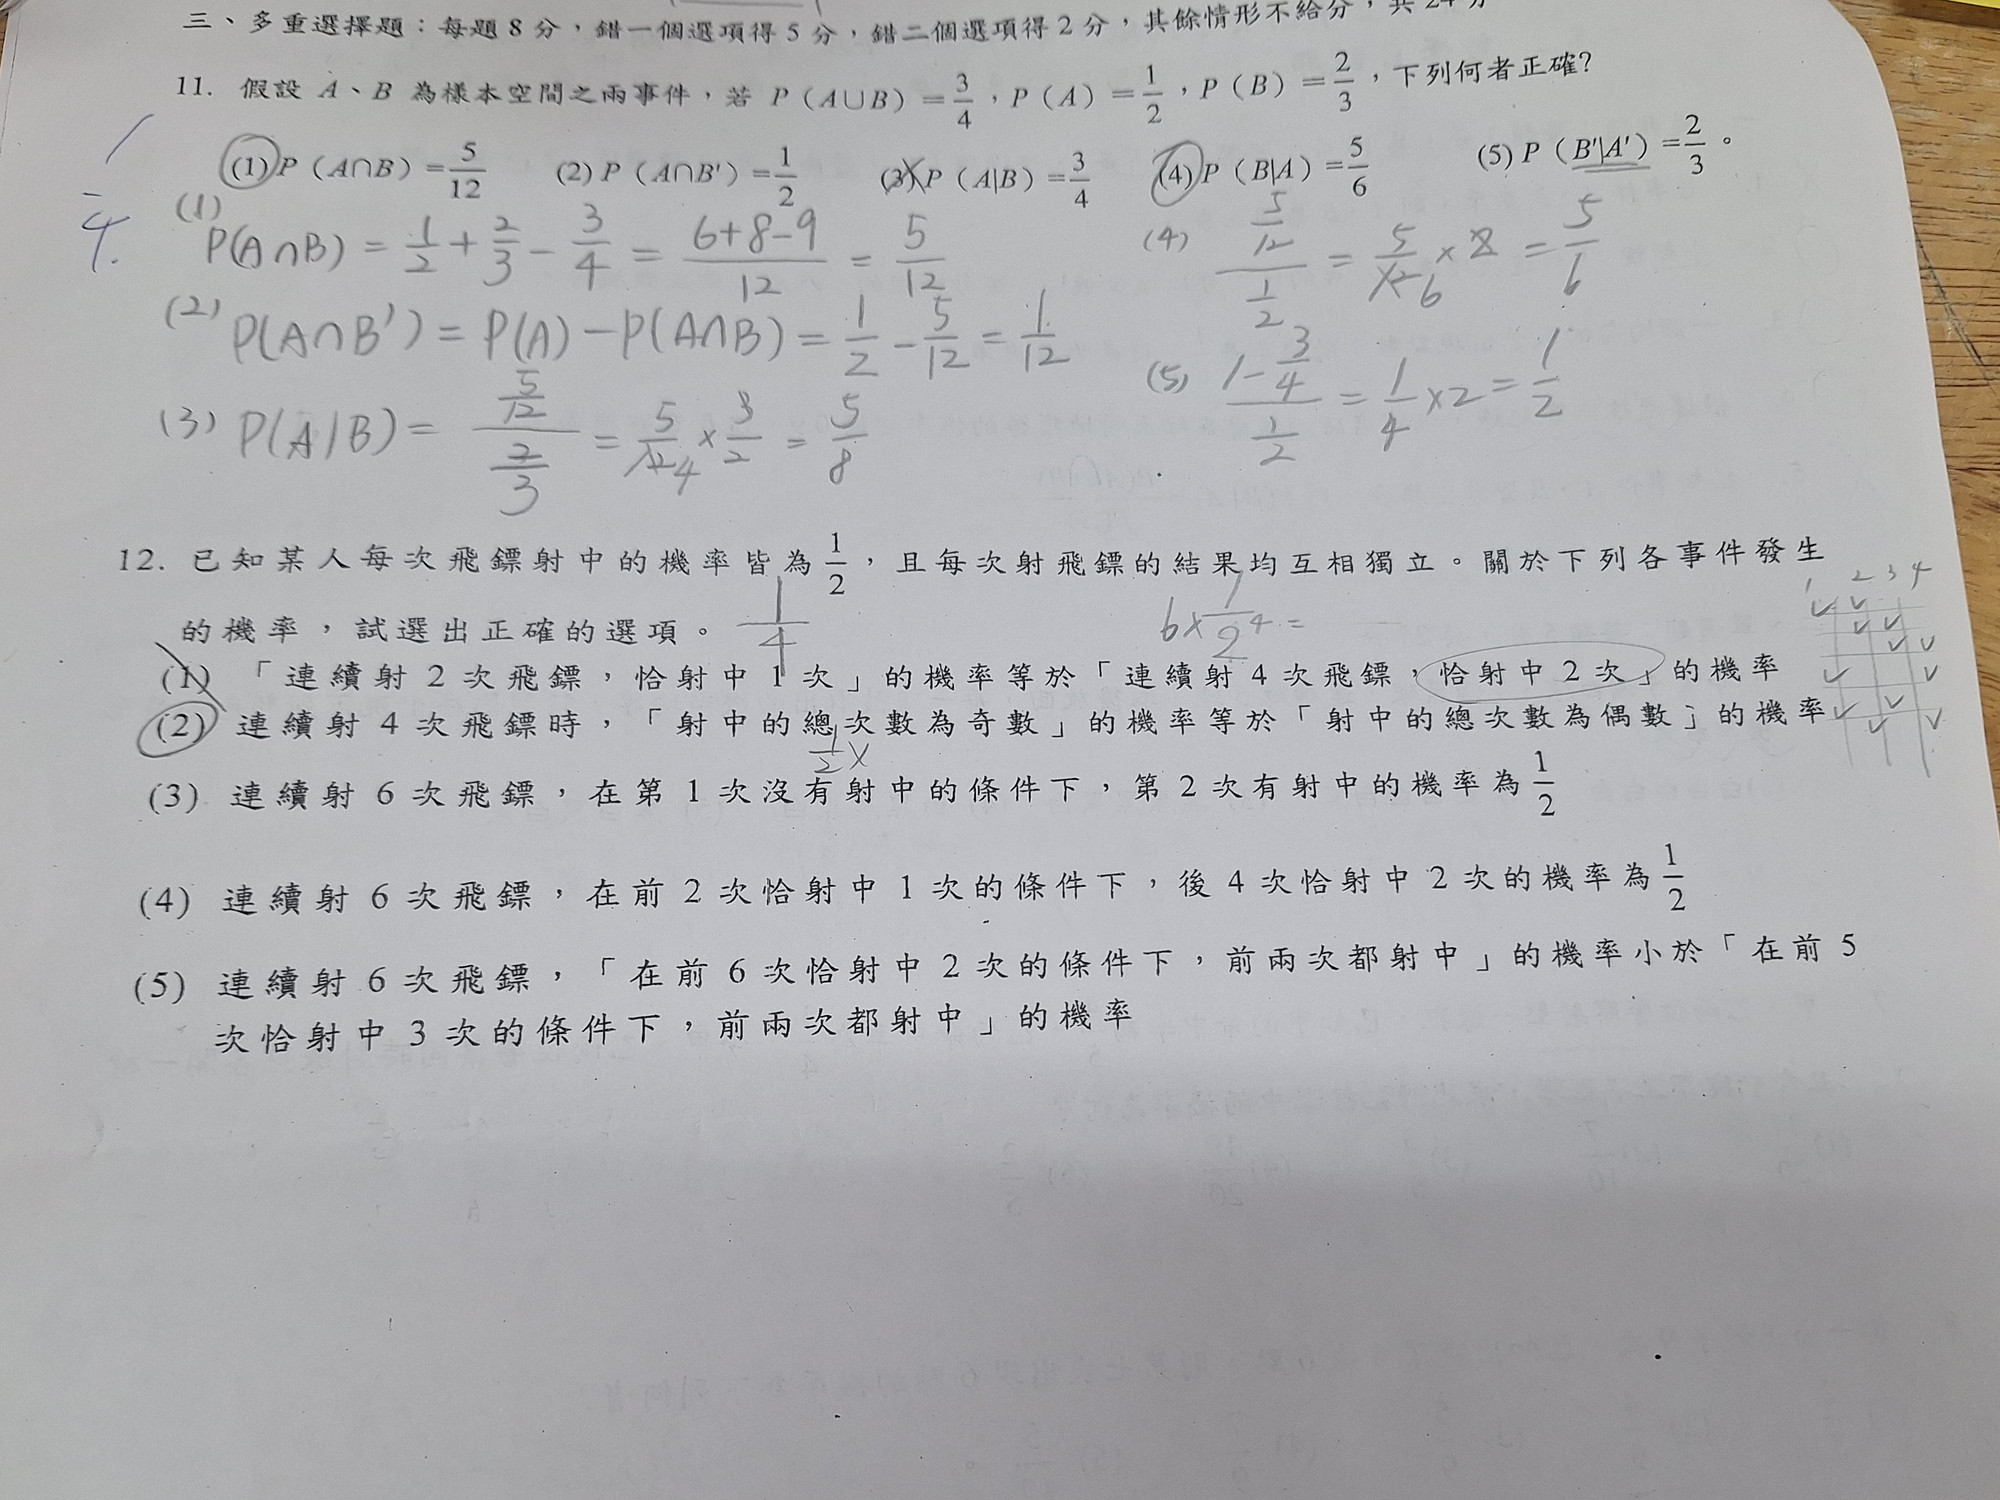 三、多重選擇題：每題8分，錯一個選項得5分，錯二個選項得2分，其餘情形不給分，共24分
11. 假設 A、B 為樣本空間之兩事件，若 P(A∪B)=3/4，P(A)=1/2，P(B)=2/3，下列何者正確?
(1) P(A∩B)=5/12 (2) P(A∩B')=1/2 (3) P(A|B)=3/4 (4) P(B|A)=5/6 (5) P(B'|A')=2/3。
1
4.
(1) P(A∩B) = 1/2 + 2/3 - 3/4 = (6+8-9)/12 = 5/12
(2) P(A∩B') = P(A) - P(A∩B) = 1/2 - 5/12 = 1/12
(3) P(A|B) = (5/12)/(2/3) = 5/12 4 × 3/2 = 5/8
(4) (5/12)/(1/2) = 5/12 6 × 2 = 5/6
(5) (1-3/4)/(1/2) = 1/4 × 2 = 1/2
12. 已知某人每次飛鏢射中的機率皆為1/2，且每次射飛鏢的結果均互相獨立。關於下列各事件發生
的機率，試選出正確的選項。
1/4
6×1/2⁴=
1 2 3 4
(1) 「連續射2次飛鏢，恰射中1次」的機率等於「連續射4次飛鏢，恰射中2次」的機率
(2) 連續射4次飛鏢時，「射中的總次數為奇數」的機率等於「射中的總次數為偶數」的機率
1/2 ×
(3) 連續射6次飛鏢，在第1次沒有射中的條件下，第2次有射中的機率為1/2
(4) 連續射6次飛鏢，在前2次恰射中1次的條件下，後4次恰射中2次的機率為1/2
(5) 連續射6次飛鏢，「在前6次恰射中2次的條件下，前兩次都射中」的機率小於「在前5
次恰射中3次的條件下，前兩次都射中」的機率